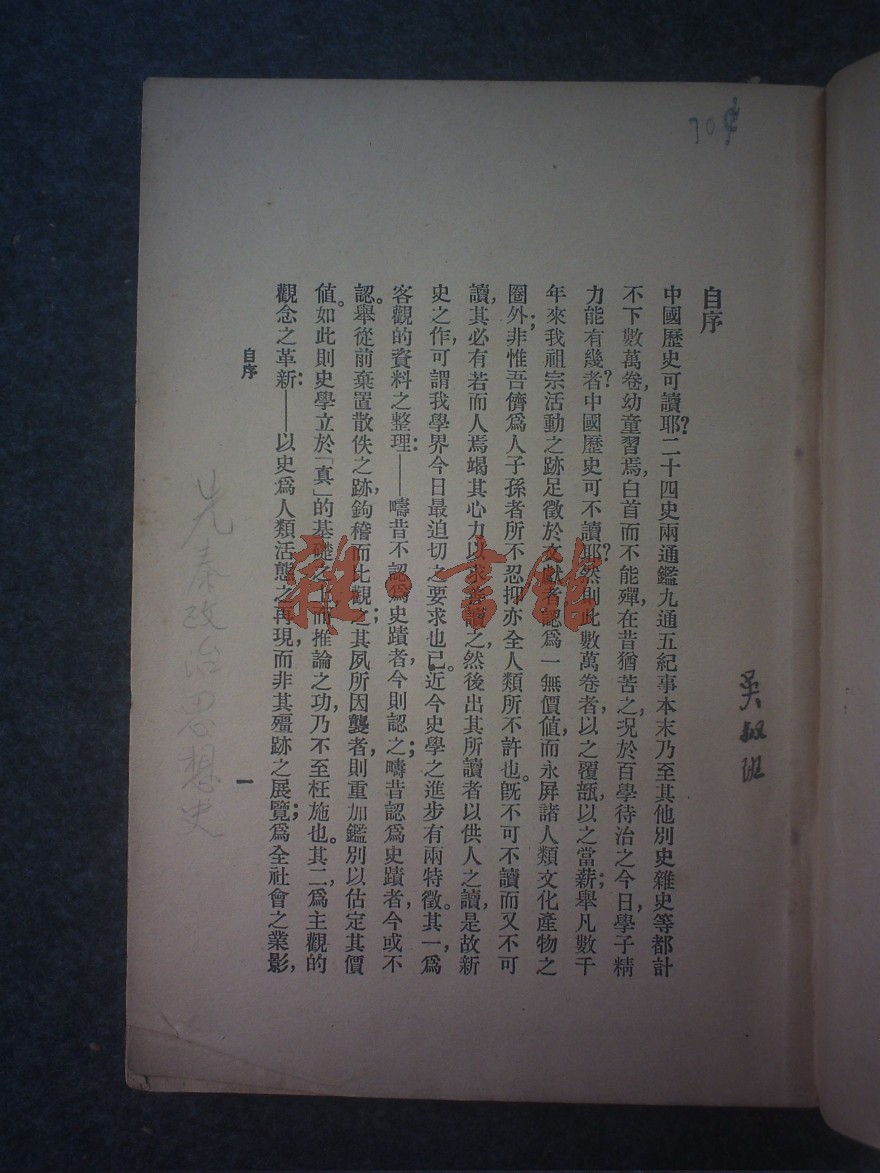 自序
中國歷史可讀耶?二十四史兩通鑑九通五紀事本末乃至其他別史雜史等都計
不下數萬卷,幼童習焉,白首而不能殫,在昔猶苦之,況於百學待治之今日,學子精
力能有幾者?中國歷史可不讀耶?然則此數萬卷者,以之覆瓿,以之當薪;舉凡數千
年來我祖宗活動之跡足徵於文獻者,認爲一無價值,而永屏諸人類文化產物之
圈外;非惟吾儕爲人子孫者所不忍,抑亦全人類所不許也。旣不可不讀而又不可
讀,其必有若而人焉竭其心力以求善讀之,然後出其所讀者以供人之讀,是故新
史之作,可謂我學界今日最迫切之要求也已。近今史學之進步有兩特徵。其一,爲
客觀的資料之整理:——疇昔不認爲史蹟者,今則認之;疇昔認爲史蹟者,今或不
認。舉從前棄置散佚之跡,鉤稽而比觀之;其夙所因襲者,則重加鑑別以估定其價
值。如此則史學立於「真」的基礎之上,而推論之功,乃不至枉施也。其二,爲主觀的
觀念之革新:——以史爲人類活態之再現,而非其殭跡之展覽;爲全社會之業影,
自序
一
先秦政治思想史
雜·書館